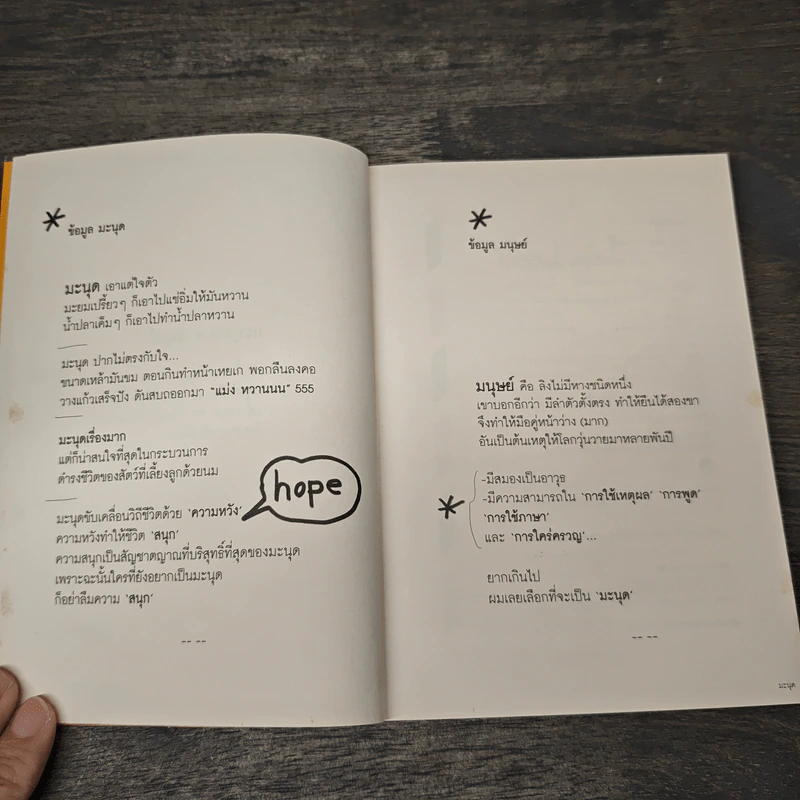 ข้อมูล มะนุด
มะนุด เอาแต่ใจตัว
มะยมเปรี้ยวๆ ก็เอาไปแช่อิ่มให้มันหวาน
น้ำปลาเค็มๆ ก็เอาไปทำน้ำปลาหวาน
มะนุด ปากไม่ตรงกับใจ...
ขนาดเหล้ามันขม ตอนกินทำหน้าเหยเก พอกลืนลงคอ
วางแก้วเสร็จปัง ดันสบถออกมา “แม่ง หวานนน” 555
มะนุดเรื่องมาก
แต่ก็น่าสนใจที่สุดในกระบวนการ
ดำรงชีวิตของสัตว์ที่เลี้ยงลูกด้วยนม
มะนุดขับเคลื่อนวิถีชีวิตด้วย ‘ความหวัง’
hope
ความหวังทำให้ชีวิต ‘สนุก’
ความสนุกเป็นสัญชาตญาณที่บริสุทธิ์ที่สุดของมะนุด
เพราะฉะนั้นใครที่ยังอยากเป็นมะนุด
ก็อย่าลืมความ ‘สนุก’
ข้อมูล มนุษย์
มนุษย์ คือ ลิงไม่มีหางชนิดหนึ่ง
เขาบอกอีกว่า มีลำตัวตั้งตรง ทำให้ยืนได้สองขา
จึงทำให้มือคู่หน้าว่าง (มาก)
อันเป็นต้นเหตุให้โลกวุ่นวายมาหลายพันปี
-มีสมองเป็นอาวุธ
-มีความสามารถใน ‘การใช้เหตุผล’ ‘การพูด’
‘การใช้ภาษา’
และ ‘การใคร่ครวญ’...
ยากเกินไป
ผมเลยเลือกที่จะเป็น ‘มะนุด’
มะนุด